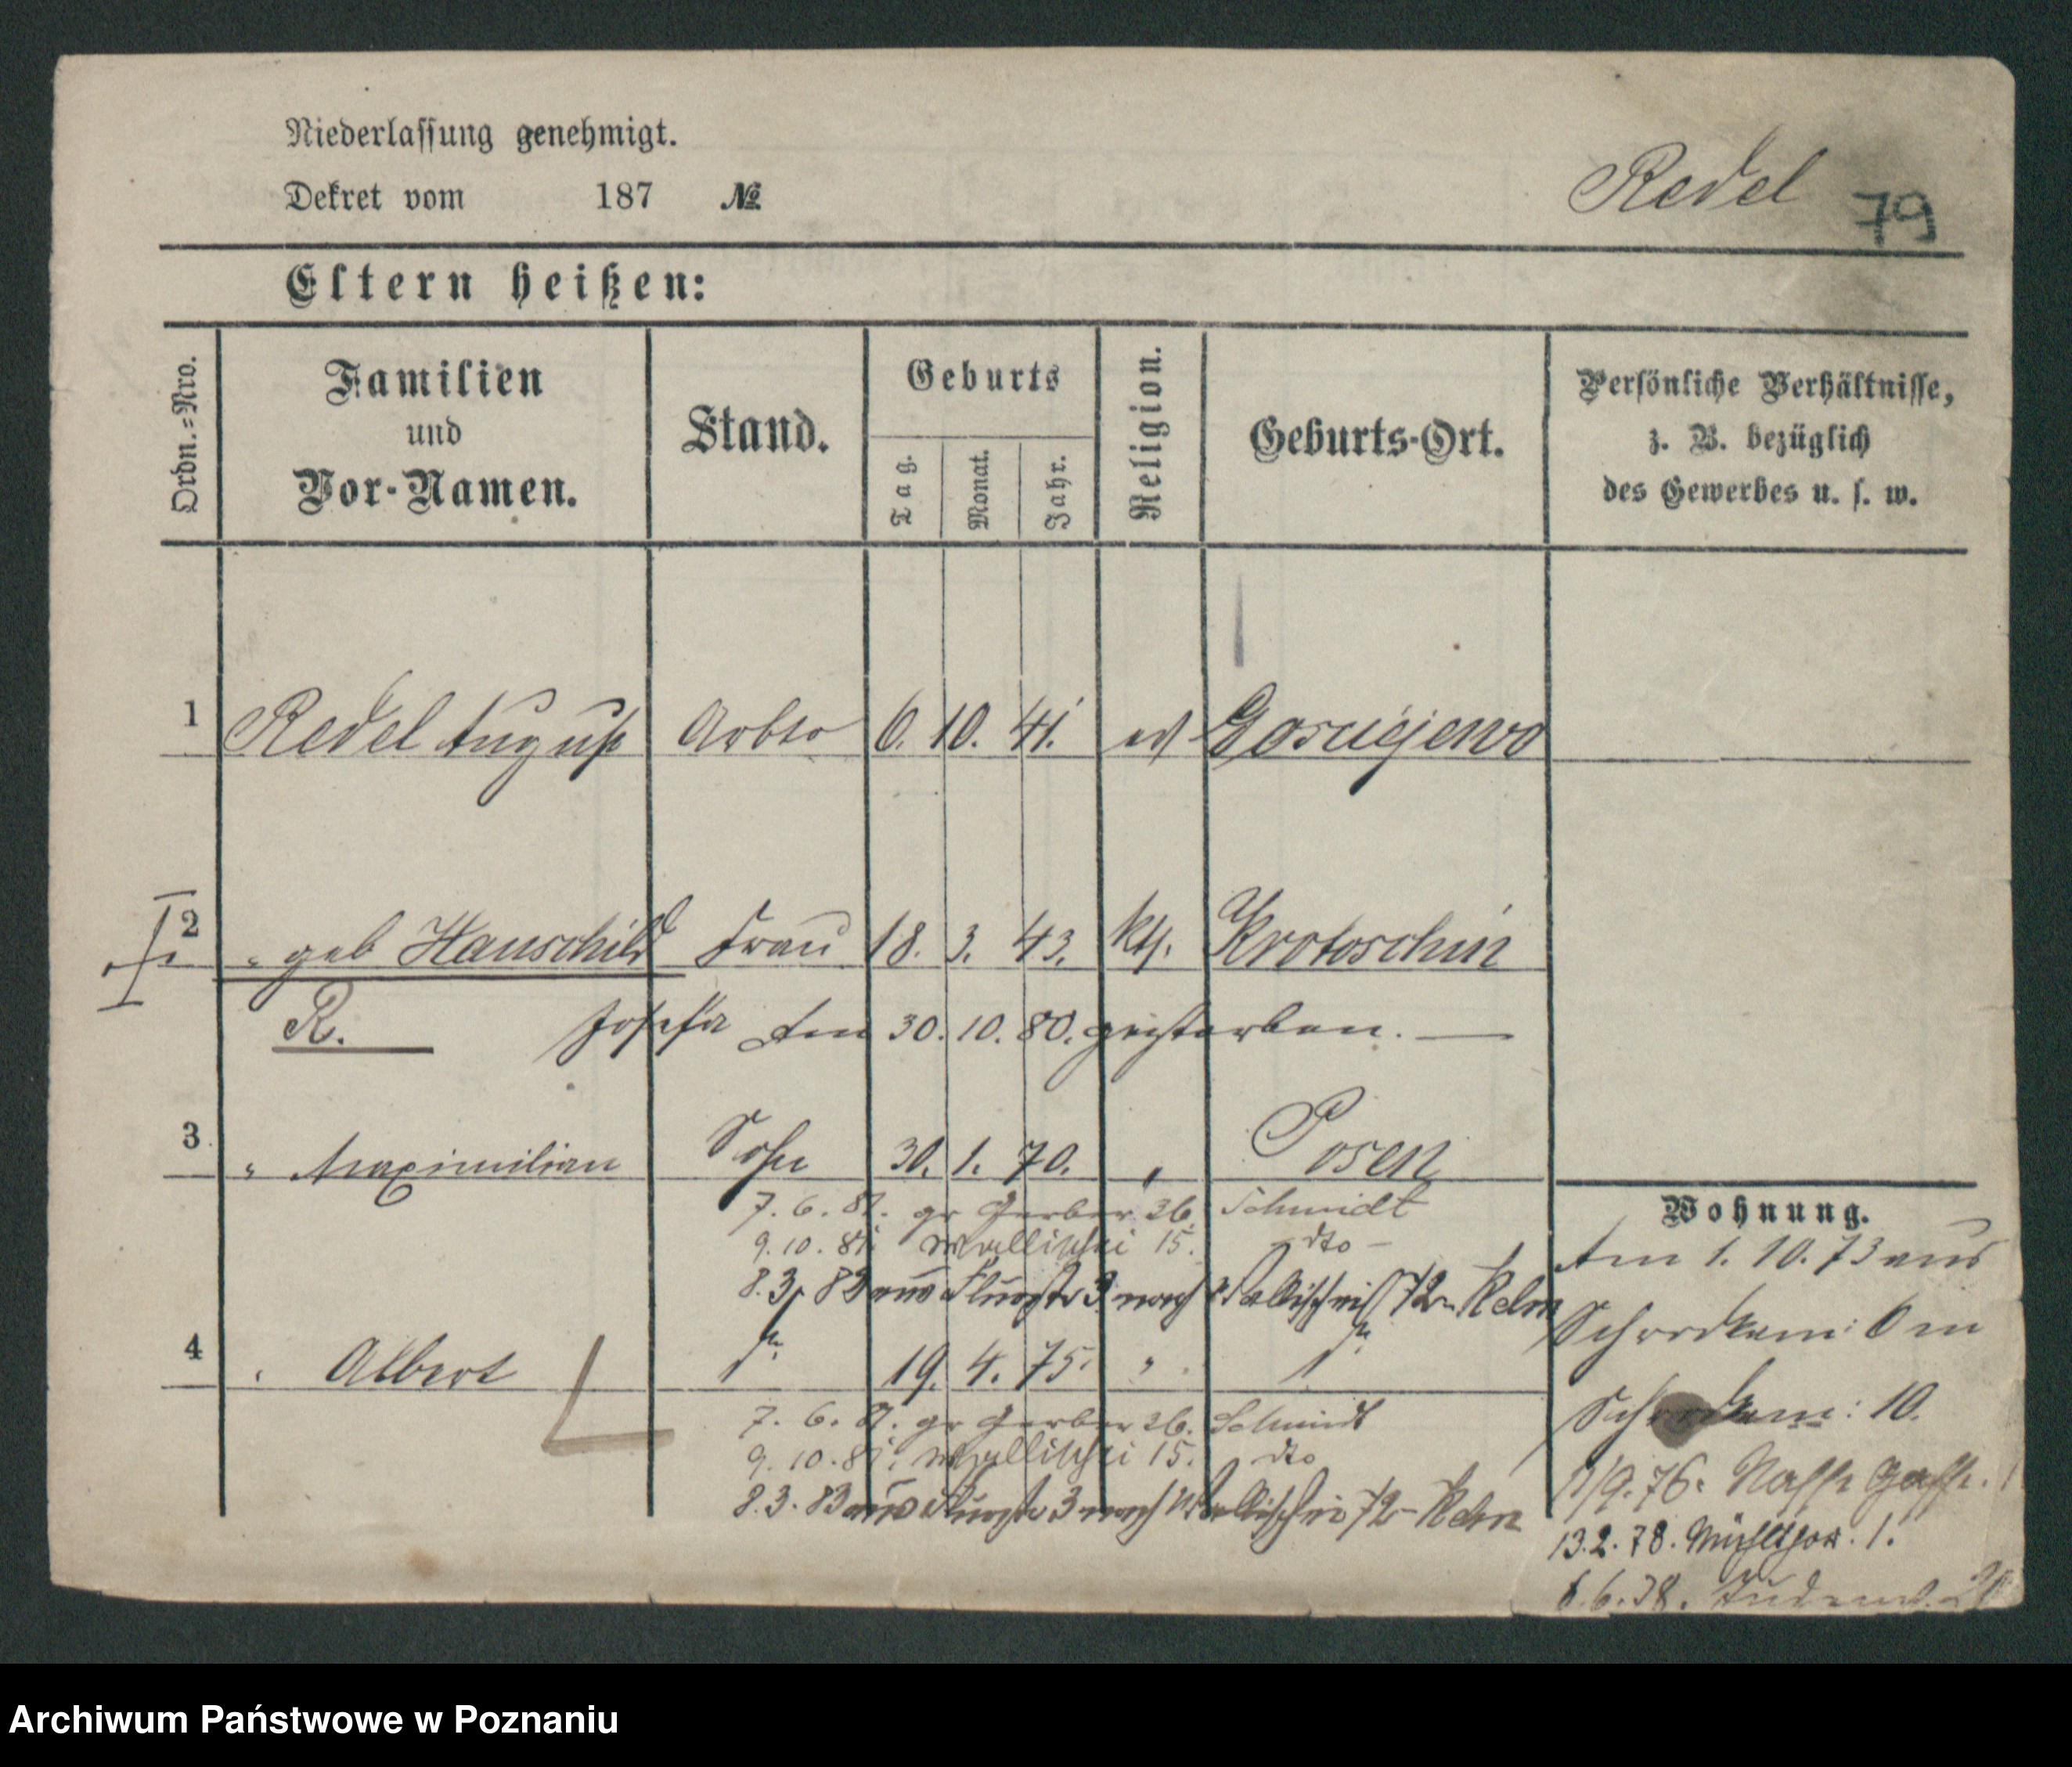 Niederlassung genehmigt.
Dekret vom 187 №
Redel 79
Eltern heißen:
Ordn.=Nro.
Familien
und
Vor-Namen.
Stand.
Geburts
Tag.
Monat.
Jahr.
Religion.
Geburts-Ort.
Persönliche Verhältnisse,
z. B. bezüglich
des Gewerbes u. s. w.
1 Redel August Arbtr 6. 10. 41. ev Gosciejewo
2 " geb Hauschild Frau 18. 3. 43. kth. Krotoschin
R. Josefa am 30. 10. 80. gestorben.
3 " Maximilian Sohn 30. 1. 70. " Posen
7. 6. 81. gr Gerber 36. Schmidt
9. 10. 81. Wallischei 15. dto
8. 3. 83 aus Flurstr 3 nach Wallischei 72
4 " Albert 19. 4. 75. "
7. 6. 81. gr Gerber 36. Schmidt
9. 10. 81. Wallischei 15. dto
8. 3. 83 aus Flurstr 3 nach Wallischei 72
Wohnung.
Am 1. 10. 73 aus
Schrodkam: 6 in
Schrodkam: 10.
11/9. 76. Nasse Gasse.
13. 2. 78. Mühlthor. 1.
6. 78.
Archiwum Państwowe w Poznaniu